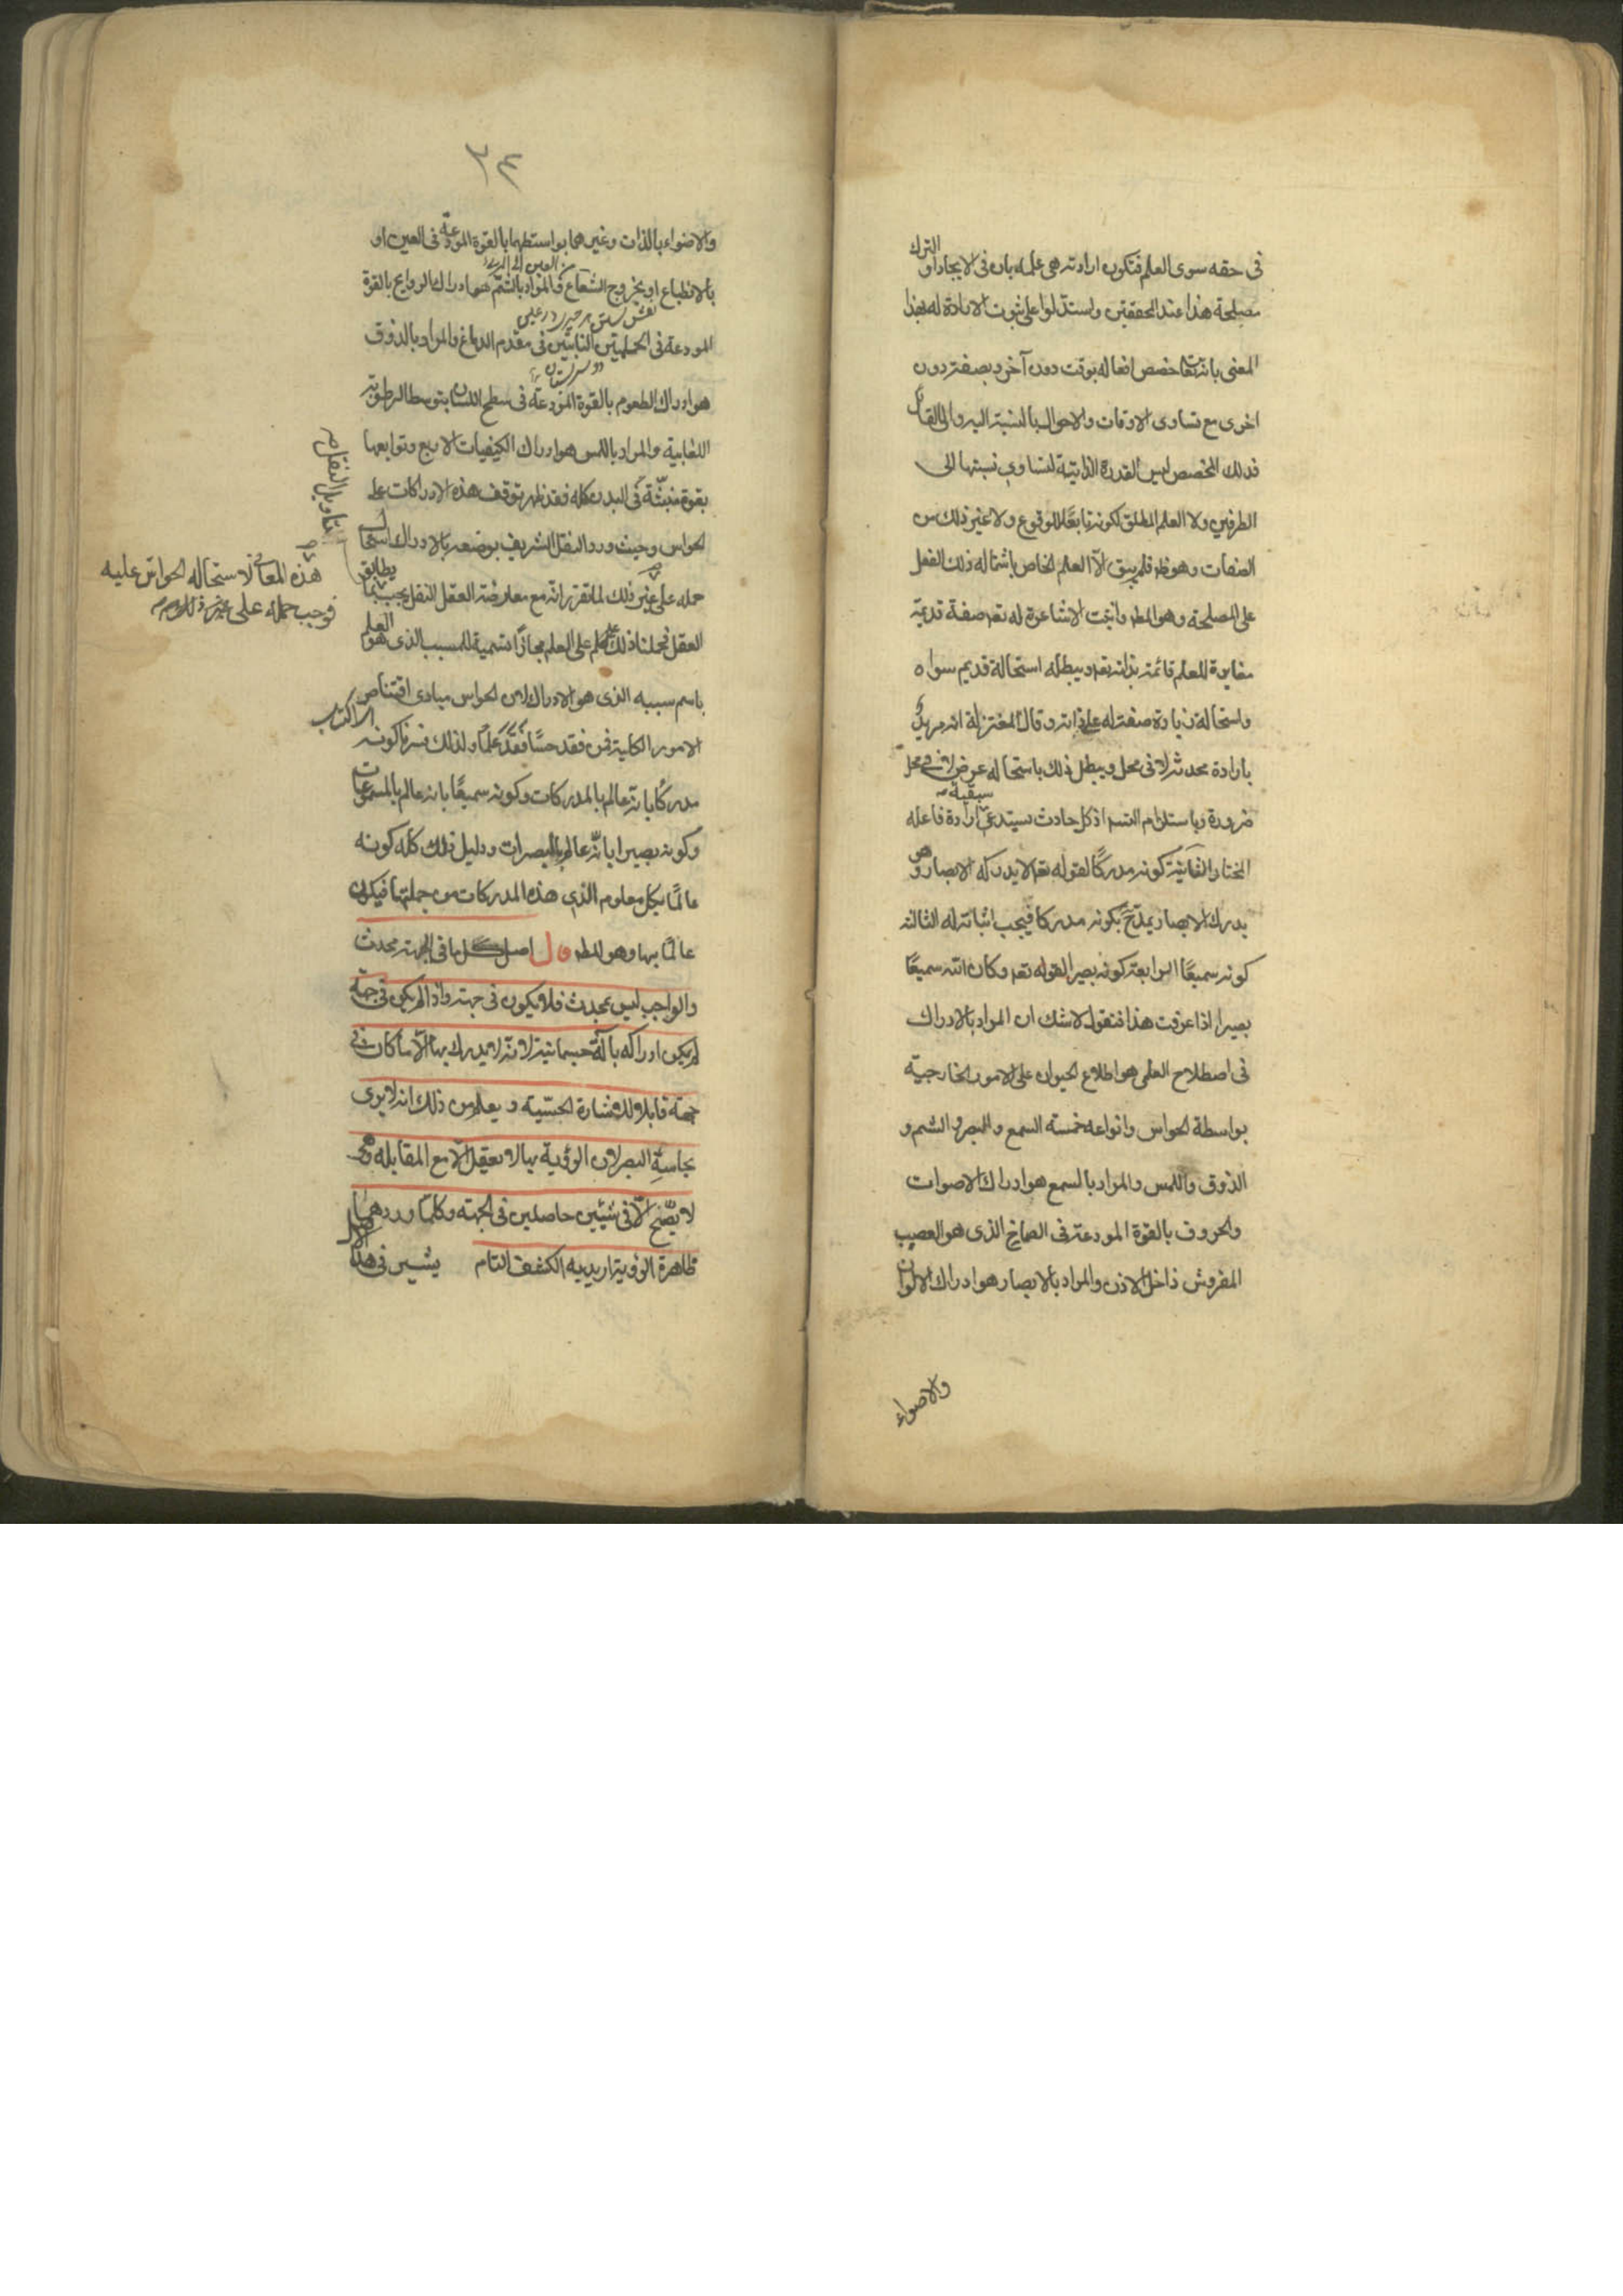 فى حقه سوى العلم فتكون ارادته هى علمه بان فى الايجاد او الترك
مصلحة هذا عند المحققين واستدلوا على ثبوت الارادة له بهذا
المعنى بانه تعا خصص افعاله بوقت دون آخر وبصفة دون
اخرى مع تساوى الاوقات والاحوال بالنسبة اليه والى القابل
فذلك المخصص ليس القدرة الذاتية لتساوى نسبتها الى
الطرفين ولا العلم المطلق لكونه تابعًا للوقوع ولا غير ذلك من
الصفات وهو ظ فلم يبق الّا العلم الخاص باشتماله ذلك الفعل
على المصلحة وهو المط واثبت الاشاعرة له تع صفة قديمة
مغايرة للعلم قائمة بذاته تع ويبطله استحالة قديم سواه
واستحالة زيادة صفته له على ذاته وقال المعتزلة انه مريد
بارادة محدثة لا فى محل ويبطل ذلك باستحاله عرض لا فى محل
سبقية
ضرورة وباستلزام التسم اذ كل حادث يستدعى ارادة فاعله
المختار الثانية كونه مدركًا لقوله تع لا يدركه الابصار وهو
يدرك الابصار يمدّح بكونه مدركا فيجب اثباته له الثالثة
كونه سميعًا الرابعة كونه بصيرا لقوله تع وكان الله سميعًا
بصيرا اذا عرفت هذا فنقول لا شك ان المراد بالادراك
فى اصطلاح العلمى هو اطلاع الحيوان على الامور الخارجية
بواسطة الحواس وانواعه خمسة السمع والبصر والشم و
الذوق واللمس والمراد بالسمع هو ادراك الاصوات
والحروف بالقوة المودعة فى الصماخ الذى هو العصب
المفروش داخل الاذن والمراد بالابصار هو ادراك الالوان
والاضواء
٣٤
والاضواء بالذات وغيرهما بواسطتهما بالقوة المودعة فى العين او
من العين الى المرئى
بالانطباع او بخروج الشعاع والمراد بالشم هو ادراك الروايح بالقوة
المودعة فى الحلمتين الناتئين فى مقدم الدماغ والمراد بالذوق
هو ادراك الطعوم بالقوة المودعة فى سطح اللسان بتوسط الرطوبة
اللعابية والمراد باللمس هو ادراك الكيفيات الاربع وتوابعها
بقوة منبثّة فى البدن كله فقد ظهر توقف هذه الادراكات على
الحواس وحيث ورد النقل الشريف بوصفه بالادراك استحال
حمله على غير ذلك لما تقرر انه مع معارضة العقل النقل يجب بما يطابق
العقل فحملنا ذلك كله على العلم مجازًا تسمية للمسبب الذى هو العلم
باسم سببه الذى هو الادراك لان الحواس مبادى اقتناص
الامور الكلية فمن فقد حسًّا فقد علمًا ولذلك فسرنا كونه
مدركًا بانه عالم بالمدركات وكونه سميعًا بانه عالم بالمسموعات
وكونه بصيرا بانّه عالم بالمبصرات ودليل ذلك كله كونه
عالمًا بكل معلوم الذى هذه المدركات من جملتها فيكون
عالمًا بها وهو المط قال اصل كل ما فى الجهة محدث
والواجب ليس بمحدث فلا يكون فى جهة واذا لم يكن فى جهة
لم يكن ادراكه بآلة جسمانية لانه لا يدرك بها الّا ما كان فى
جهة قابلا للاشارة الحسّية ويعلم من ذلك انه لا يرى
بحاسة البصر لان الرؤية بها لا تعقل الا مع المقابلة وهى
لا يصّح الّا فى شيئين حاصلين فى الجهة وكلما ورد مما
ظاهرة الرؤية اريد به الكشف التام يشير فى هذا الاصل
بتاويل النقل
هذه المعانى لاستحاله الحواس عليه
فوجب حمله على غير ذلك
اى اكتساب